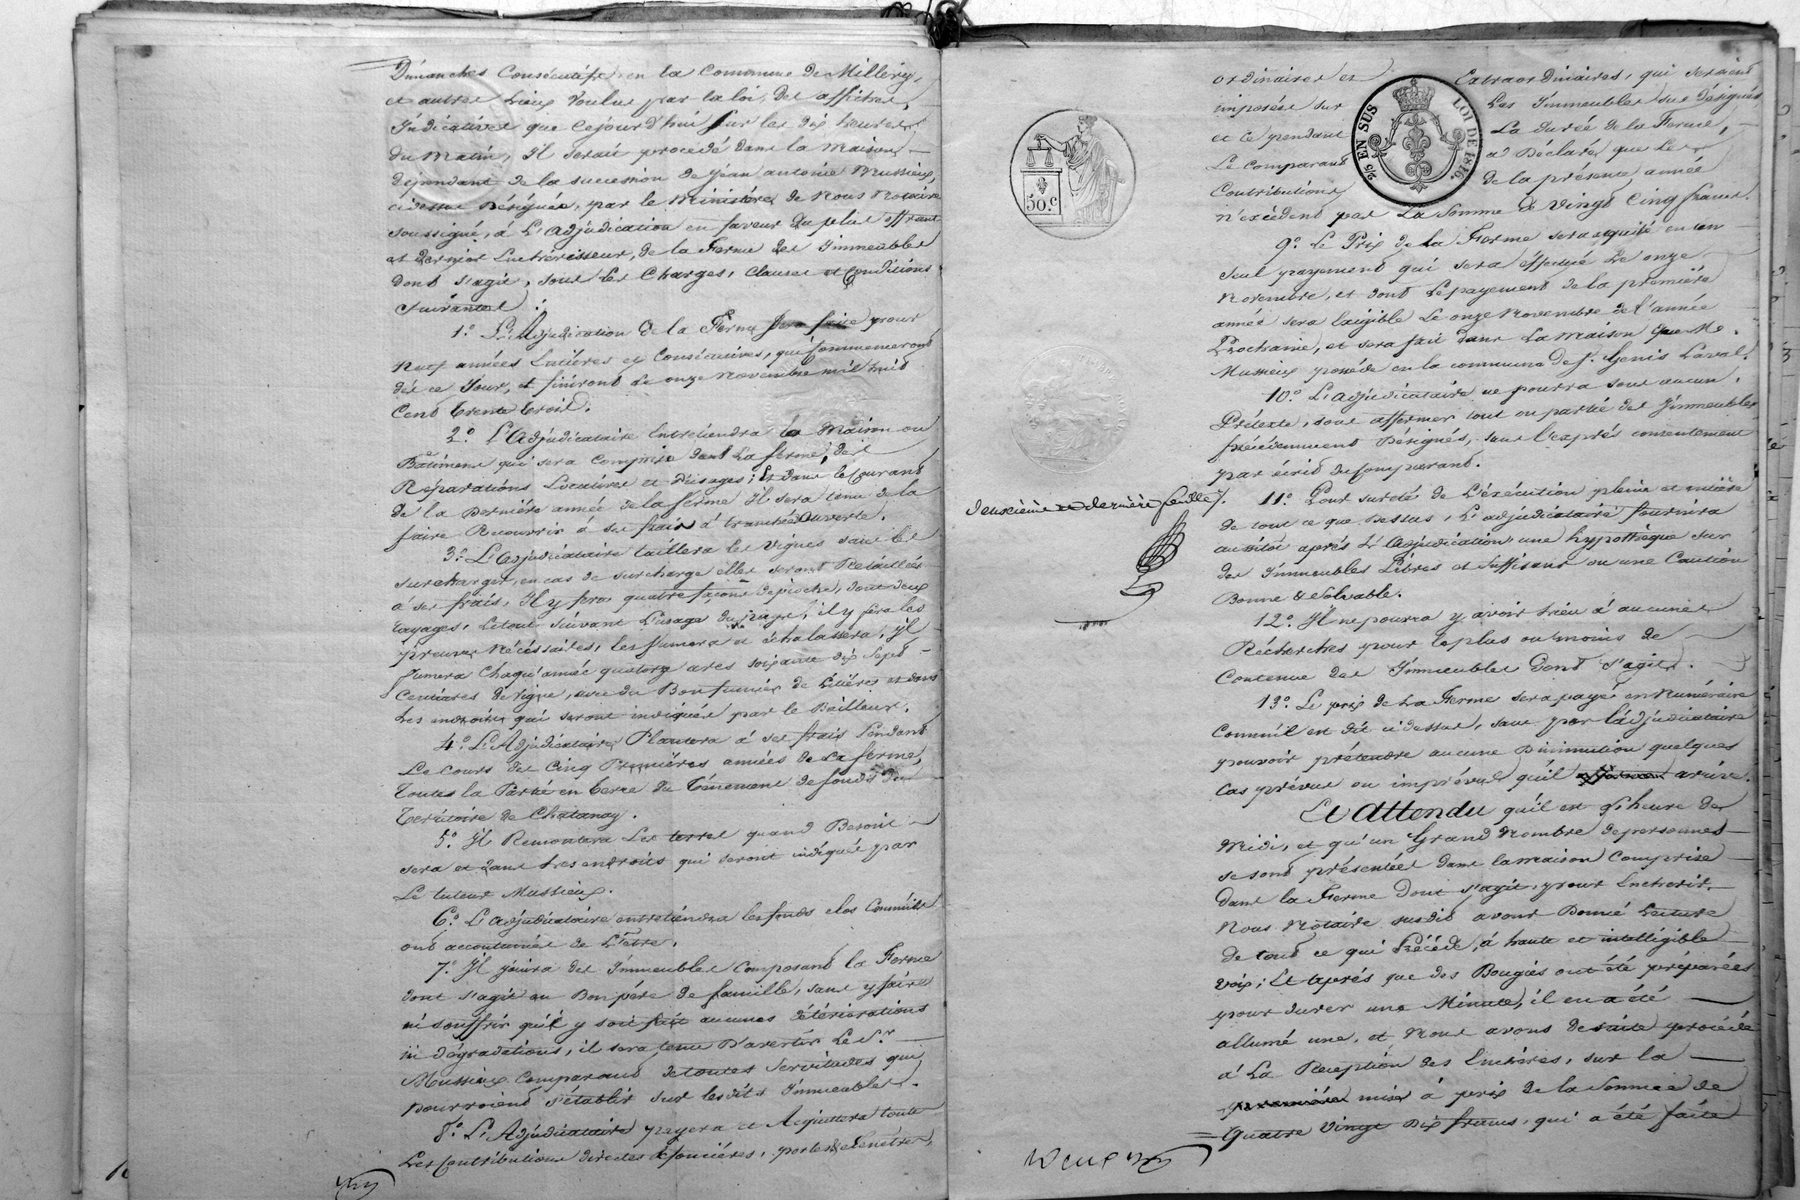 Dimanches Consécutifs en la Commune de Millery,
et autres Lieux Voulus par la loi, des affiches,
Indicatives que Cejourd'hui sur les dix heures
du Matin, Il serait procédé dans la Maison
dépendant de la succession de Jean antoine Mussieux,
cidessus Désignée, par le Ministère de Nous Notaire
soussigné, à L'adjudication en faveur du plus offrant
et dernier Enchérisseur, de la Ferme des Immeubles
dont s'agit, sous les Charges, Clauses et Conditions
suivantes :
1.° L'Adjudication de la Ferme sera faite pour
Neuf années Entières et Consécutives, qui Commenceront
dès ce Jour, et finiront le onze Novembre mil huit
Cent trente trois.
2.° L'Adjudicataire Entretiendra la Maison ou
Bâtiment qui sera Comprise dans La ferme, des
Réparations Locatives et d'usages; Et dans le Courant
de la Dernière année de la ferme Il sera tenu de la
faire Recouvrir à ses frais à tranchée ouverte.
3.° L'Adjudicataire taillera les Vignes sans les
surcharger, en cas de surcharge elles seront Retaillées
à ses frais, Il y fera quatre façons de pioche, dont deux
Rayages, Letout Suivant L'usage du pays; il y fera les
preuves Nécéssaires, les fumera et échalassera; Il
fumera Chaqu'année quatorze ares soixante dix Sept
Centiares de Vigne, avec du Bon fumier de Litières et dans
Les endroits qui seront indiqués par le Bailleur.
4.° L'Adjudicataire Plantera à ses frais Pendant
Le cours des Cinq Premières années de La ferme,
Toutes la Partie en terre du Ténement de fonds du
Territoire de Chatanay.
5.° Il Remontera Les terres quand Besoin
sera et dans Les endroits qui seront indiqués par
Le tuteur Mussieux.
6.° L'adjudicataire entretiendra les fonds clos Comme ils
ont accoutumés de L'être.
7.° Il jouira des Immeubles Composant la Ferme
dont s'agit en Bon père de famille, sans y faire
ni souffrir qu'il y soit fait aucunes détériorations
ni dégradations, il sera tenu D'avertir Le S.r
Mussieux Comparant de toutes Servitudes qui
pourroient s'établir sur lesdits Immeubles.
8.° L'Adjudicataire payera et Acquittera toute
Les Contributions directes & foncières, portes & fenêtres,
ordinaires et Extraordinaires, qui seraient
imposées sur Les Immeubles sus désignés
et ce pendant La durée de la Ferme,
Le Comparant a Déclaré que Les
Contributions de la présente année
n'excédent pas La Somme de Vingt Cinq francs.
9.° Le Prix de la Ferme sera acquitté en un
seul payement qui sera effectué Le onze
Novembre, et dont Lepayement de la première
année sera Exigible Le onze Novembre de l'année
Prochaine, et sera fait dans La maison que Me.
Mussieux possède en la commune de S.t Genis Laval.
10.° L'adjudicataire ne pourra sous aucun
Prétexte, sous affermer tout ou partie des Immeubles
précédemment Désignés, sans l'exprès consentement
par écrit du Comparant.
deuxième et dernière feuille /.
11.° Pour sureté de L'exécution pleine et entière
de tout ce que Dessus, L'adjudicataire fournira
aussitôt après L'adjudication une hypothèque sur
des Immeubles Libres et Suffisants ou une Caution
Bonne & Solvable.
12.° Il ne pourra y avoir lieu à aucunes
Récherches pour le plus ou moins de
Contenue des Immeubles dont s'agit.
13.° Le prix de La Ferme sera payé en Numéraire
Comme il est dit ci dessus, sans par l'adjudicataire
pouvoir prétendre aucune Diminution quelques
Cas prévus ou imprévus qu'il arrive.
Et Attendu qu'il est L'heure de
Midi, et qu'un Grand Nombre de personnes
se sont présentées dans la maison Comprise
dans la Ferme Dont s'agit, pour Enchérir,
Nous Notaire susdit avons Donné Lecture
de tout ce qui Précède, à haute et intelligible
voix; Et après que des Bougies ont été préparées
pour durer une Minute, il en a été
allumé une, et Nous avons de suite procédé
à La Réception des Enchères, sur la
première mise à prix de la Somme de
Quatre vingt dix francs, qui a été faite
50.c
2/5 EN SUS
LOI DE 1816.